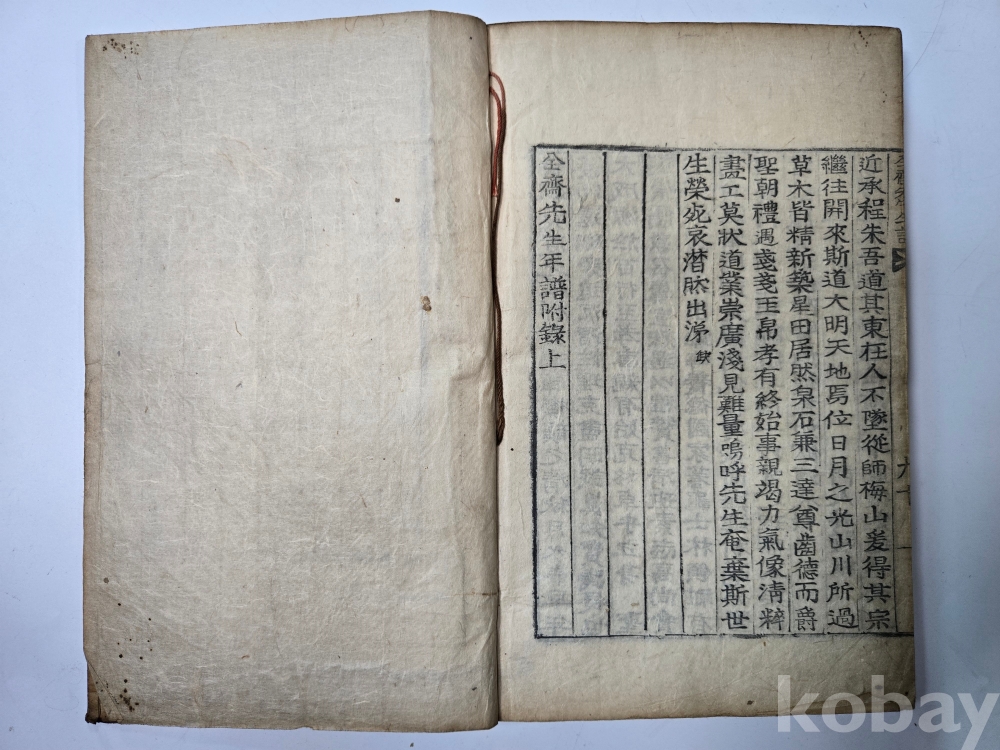 近承程朱吾道其東在人不墜從師梅山爰得其宗
繼往開來斯道大明天地焉位日月之光山川所過
草木皆精新築犀田居然泉石兼三達尊齒德而爵
聖朝禮遇戔戔玉帛孝有終始事親竭力氣像淸粹
畫工莫狀道業崇廣淺見難量嗚呼先生奄棄斯世
生榮死哀潸肰出涕 缺
全齋先生年譜附錄上
kobay